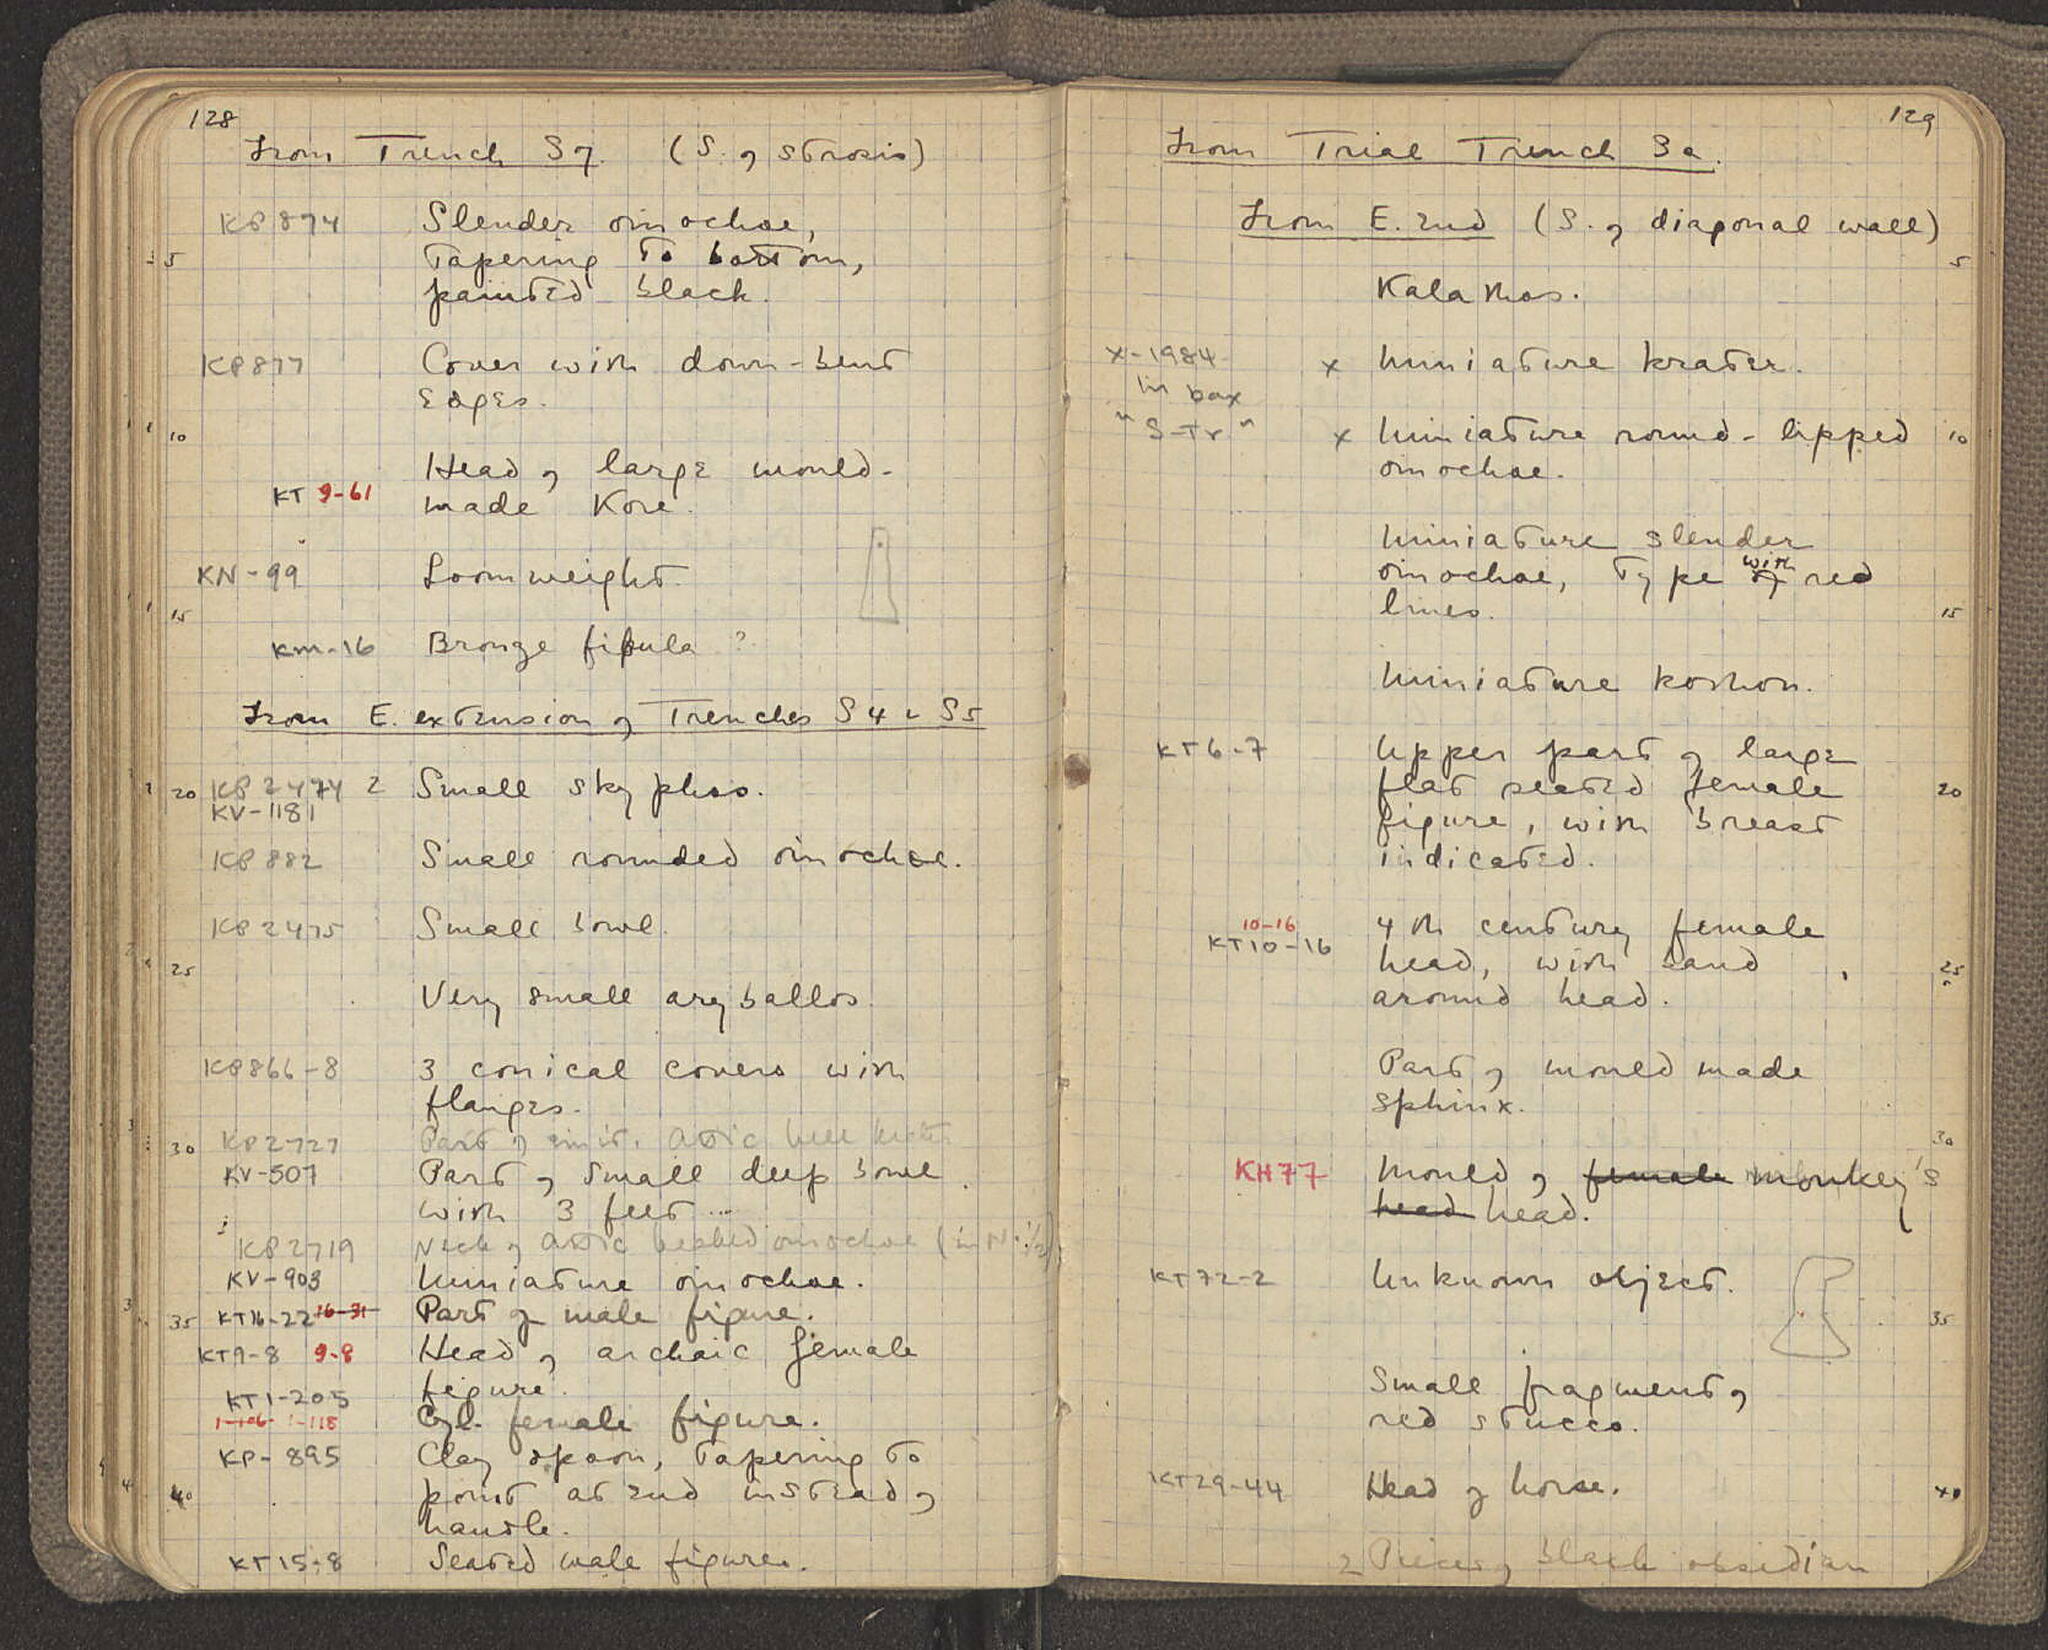 128
From Trench S7. (S. of strosis)
KP 874 Slender oinochoe,
5 tapering to bottom,
painted black.
KP 877 Cover with down-bent
edges.
10
Head of large mould-
KT 9-61 made Kore.
KN-99 Loomweight.
15
KM-16 Bronze fibula ?
From E. extension of Trenches S4 & S5
20 KP 2474 2 Small skyphos.
KV-1181
KP 882 Small rounded oinochoe.
KP 2475 Small bowl.
25
Very small aryballos.
KP 866-8 3 conical covers with
flanges.
30 KP 2727 Part of imit. Attic
KV-507 Part of small deep bowl
with 3 feet ...
KP 2719 Neck of Attic beaked oinochoe (in N. 1/2)
KV-903 Miniature oinochoe.
35 KT16-22 16-31 Part of male figure.
KT9-8 9-8 Head of archaic female
figure.
KT1-205
1-106 1-118 Cyl. female figure.
KP-895 Clay spoon, tapering to
40 point at end instead of
handle.
KT15-8 Seated male figure.
129
From Trial Trench 3a.
From E. end (S. of diagonal wall)
5
Kalathos.
x-1984 x Miniature krater.
in box
"S-Tr" x Miniature round-lipped 10
oinochoe.
Miniature slender
oinochoe, type of with red
lines. 15
Miniature kothon.
KT6-7 Upper part of large
flat seated female 20
figure, with breast
indicated.
10-16 4th century female
KT10-16 head, with band 25
around head.
Part of mould made
sphinx.
30
KH77 Mould of female monkey's
head head.
KT72-2 Unknown object.
35
Small fragment of
red stucco.
KT29-44 Head of horse. 40
2 Pieces of black obsidian